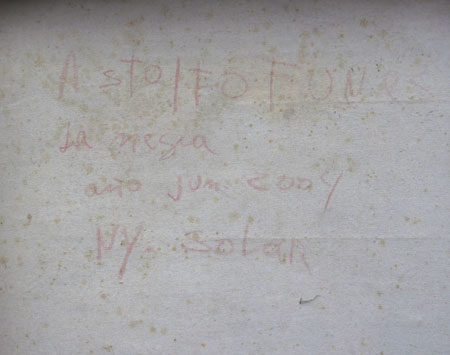 AStolFO FUNES
La negra
año jun 2004
NY. SoLaR